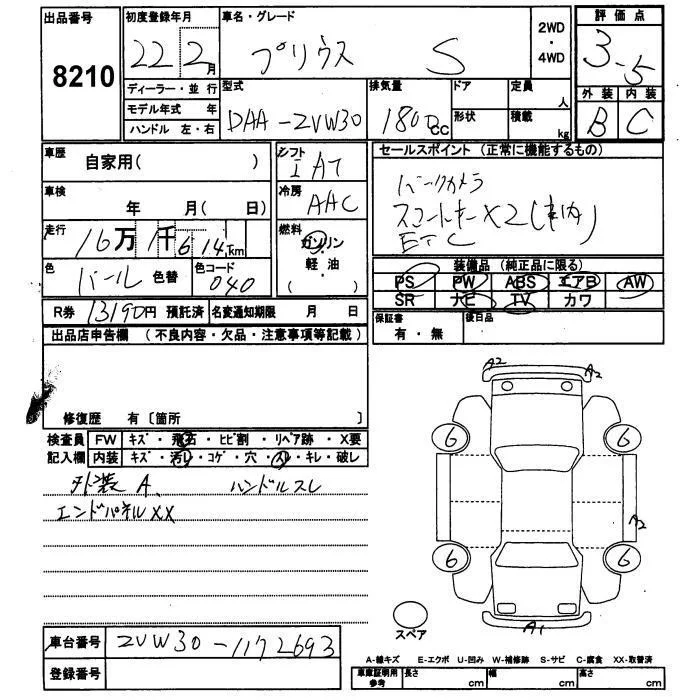 出品番号
8210
初度登録年月
22 2月
車名・グレード
プリウス S
2WD
・
4WD
評価点
3.5
外装 内装
B C
ディーラー・並行
モデル年式 年
ハンドル 左・右
型式
DAA-ZVW30
排気量
1800cc
ドア
形状
定員
人
積載
kg
車歴
自家用( )
シフト
IAT
車検
年 月( 日)
冷房
AAC
走行
16万 1千 614km
燃料
ガソリン
・
軽・油
( )
色
パール
色替
色コード
040
セールスポイント (正常に機能するもの)
バックカメラ
スマートキーX2(車内)
ETC
装備品 (純正品に限る)
PS PW ABS エアB AW
SR ナビ TV カワ
R券 13190円 預託済
名変通知期限 月 日
保証書
有・無
後日品
出品店申告欄 (不良内容・欠品・注意事項等記載)
修復歴 有〔箇所 〕
検査員
記入欄
FW キズ・飛石・ヒビ割・リペア跡・X要
内装 キズ・汚れ・コゲ・穴・スレ・キレ・破レ
外装A、 ハンドルスレ
エンドパネルXX
A2
A2
6
6
A2
6
6
A1
スペア
車台番号
ZVW30-1172693
登録番号
A-線キズ E-エクボ U-凹み W-補修跡 S-サビ C-腐食 XX-取替済
車庫証明用
参考
長さ cm
幅 cm
高さ cm